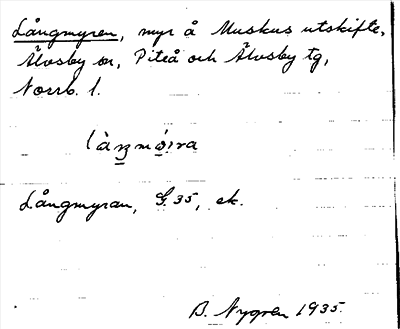 Långmyren, myr å Muskus utskifte,
Älvsby sn, Piteå och Älvsby tg,
Norrb. l.
Långmyran, G.35, ek.
B. Nygren 1935.